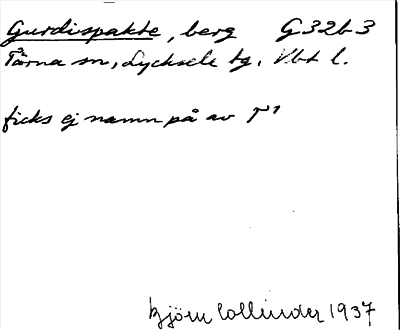 Gurdispakte, berg G32b3
Tärna sn, Lycksele tg. Vbt l.
ficks ej namn på av T¹
Björn Collinder 1937